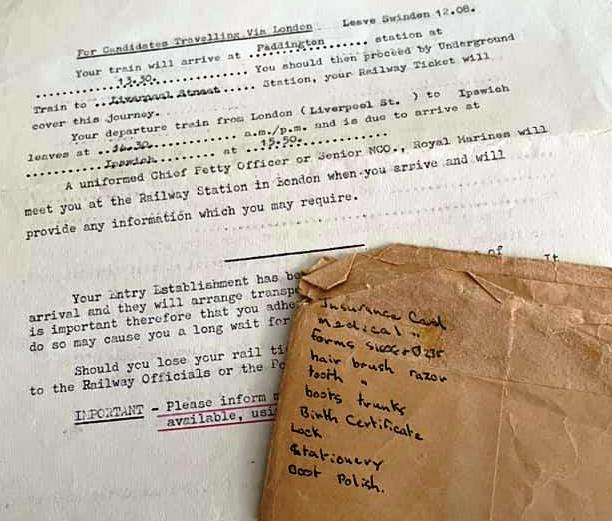 For Candidates Travelling Via London Leave Swindon 12.08.
Your train will arrive at Paddington station at
13.30. You should then proceed by Underground
Train to Liverpool Street Station, your Railway Ticket will
cover this journey.
Your departure train from London (Liverpool St. ) to Ipswich
leaves at a.m./p.m. and is due to arrive at
Ipswich at 15.50.
A uniformed Chief Petty Officer or Senior NCO., Royal Marines will
meet you at the Railway Station in London when you arrive and will
provide any information which you may require.
Your Entry Establishment has of It
arrival and they will arrange
is important therefore that you
do so may cause you a long wait for
Should you lose your rail
to the Railway Officials or the
IMPORTANT - Please inform
available,
Insurance Card
medical "
forms
hair brush razor
tooth "
boots trunks
Birth Certificate
Lock
Stationery
Boot Polish.